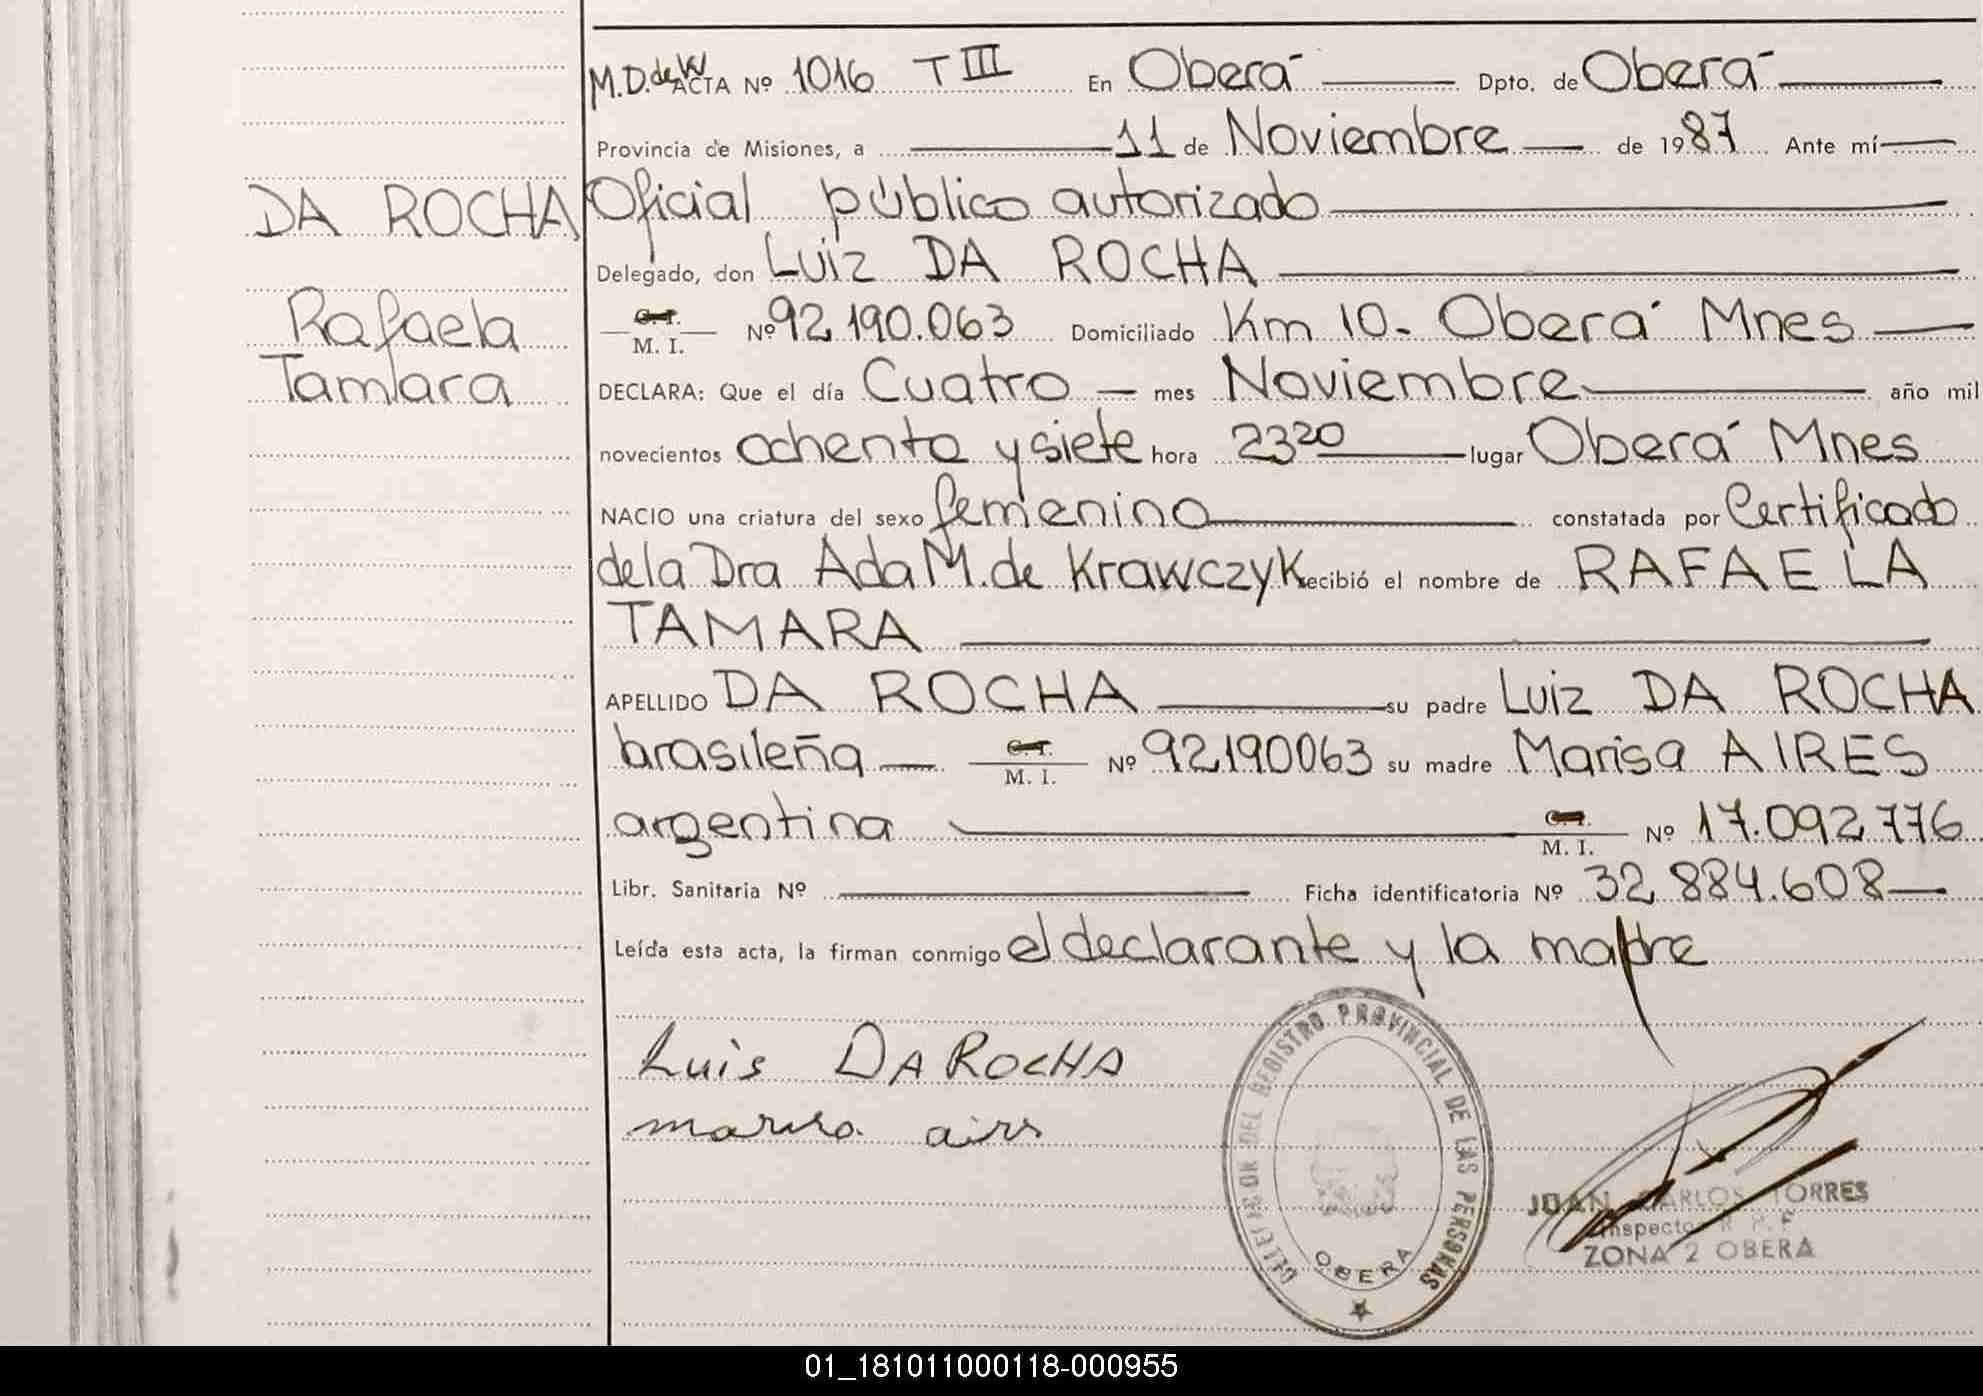 M.D.de K ACTA Nº 1016 T III En Oberá Dpto. de Oberá
Provincia de Misiones, a 11 de Noviembre de 1987 Ante mí
DA ROCHA Oficial público autorizado
Delegado, don Luiz DA ROCHA
Rafaela C.I. M. I. Nº 92.190.063 Domiciliado Km 10 - Oberá Mnes
Tamara DECLARA: Que el día Cuatro mes Noviembre año mil
novecientos ochenta y siete hora 23 20 lugar Oberá Mnes
NACIO una criatura del sexo femenino constatada por Certificado
de la Dra Ada M. de Krawczyk recibió el nombre de RAFAELA
TAMARA
APELLIDO DA ROCHA su padre Luiz DA ROCHA
brasileña C.I. M. I. Nº 92190063 su madre Marisa AIRES
argentina C.I. M. I. Nº 17.092.776
Libr. Sanitaria Nº Ficha identificatoria Nº 32.884.608
Leída esta acta, la firman conmigo el declarante y la madre
Luis DA ROCHA
marisa aires
DELEGACION DEL REGISTRO PROVINCIAL DE LAS PERSONAS
OBERA
JUAN CARLOS TORRES
Inspector R. P. P.
ZONA 2 OBERA
01_181011000118-000955